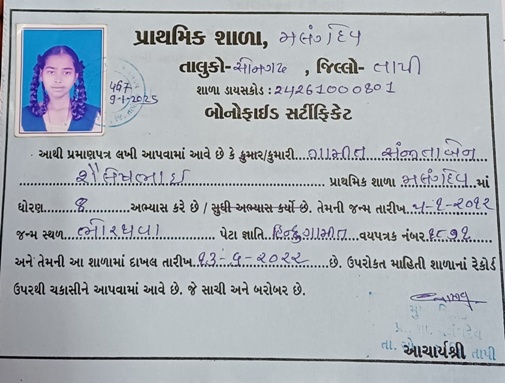 પ્રાથમિક શાળા, મલંગદેવ
તાલુકો-સોનગઢ , જિલ્લો- તાપી
467
9-1-2025
શાળા ડાયસકોડ : 24261000801
બોનોફાઈડ સર્ટીફિકેટ
આથી પ્રમાણપત્ર લખી આપવામાં આવે છે કે કુમાર/કુમારી ગામીત સંજનાબેન
શૈલેષભાઈ પ્રાથમિક શાળા મલંગદેવ માં
ધોરણ ૪ અભ્યાસ કરે છે / સુધી અભ્યાસ કર્યો છે. તેમની જન્મ તારીખ ૫-૧-૨૦૧૨
જન્મ સ્થળ પેટા જ્ઞાતિ હિન્દુગામીત વયપત્રક નંબર ૧૮૭૧
અને તેમની આ શાળામાં દાખલ તારીખ ૧૩-૬-૨૦૨૨ છે. ઉપરોકત માહિતી શાળાનાં રેકોર્ડ
ઉપરથી ચકાસીને આપવામાં આવે છે. જે સાચી અને બરોબર છે.
આચાર્યશ્રી